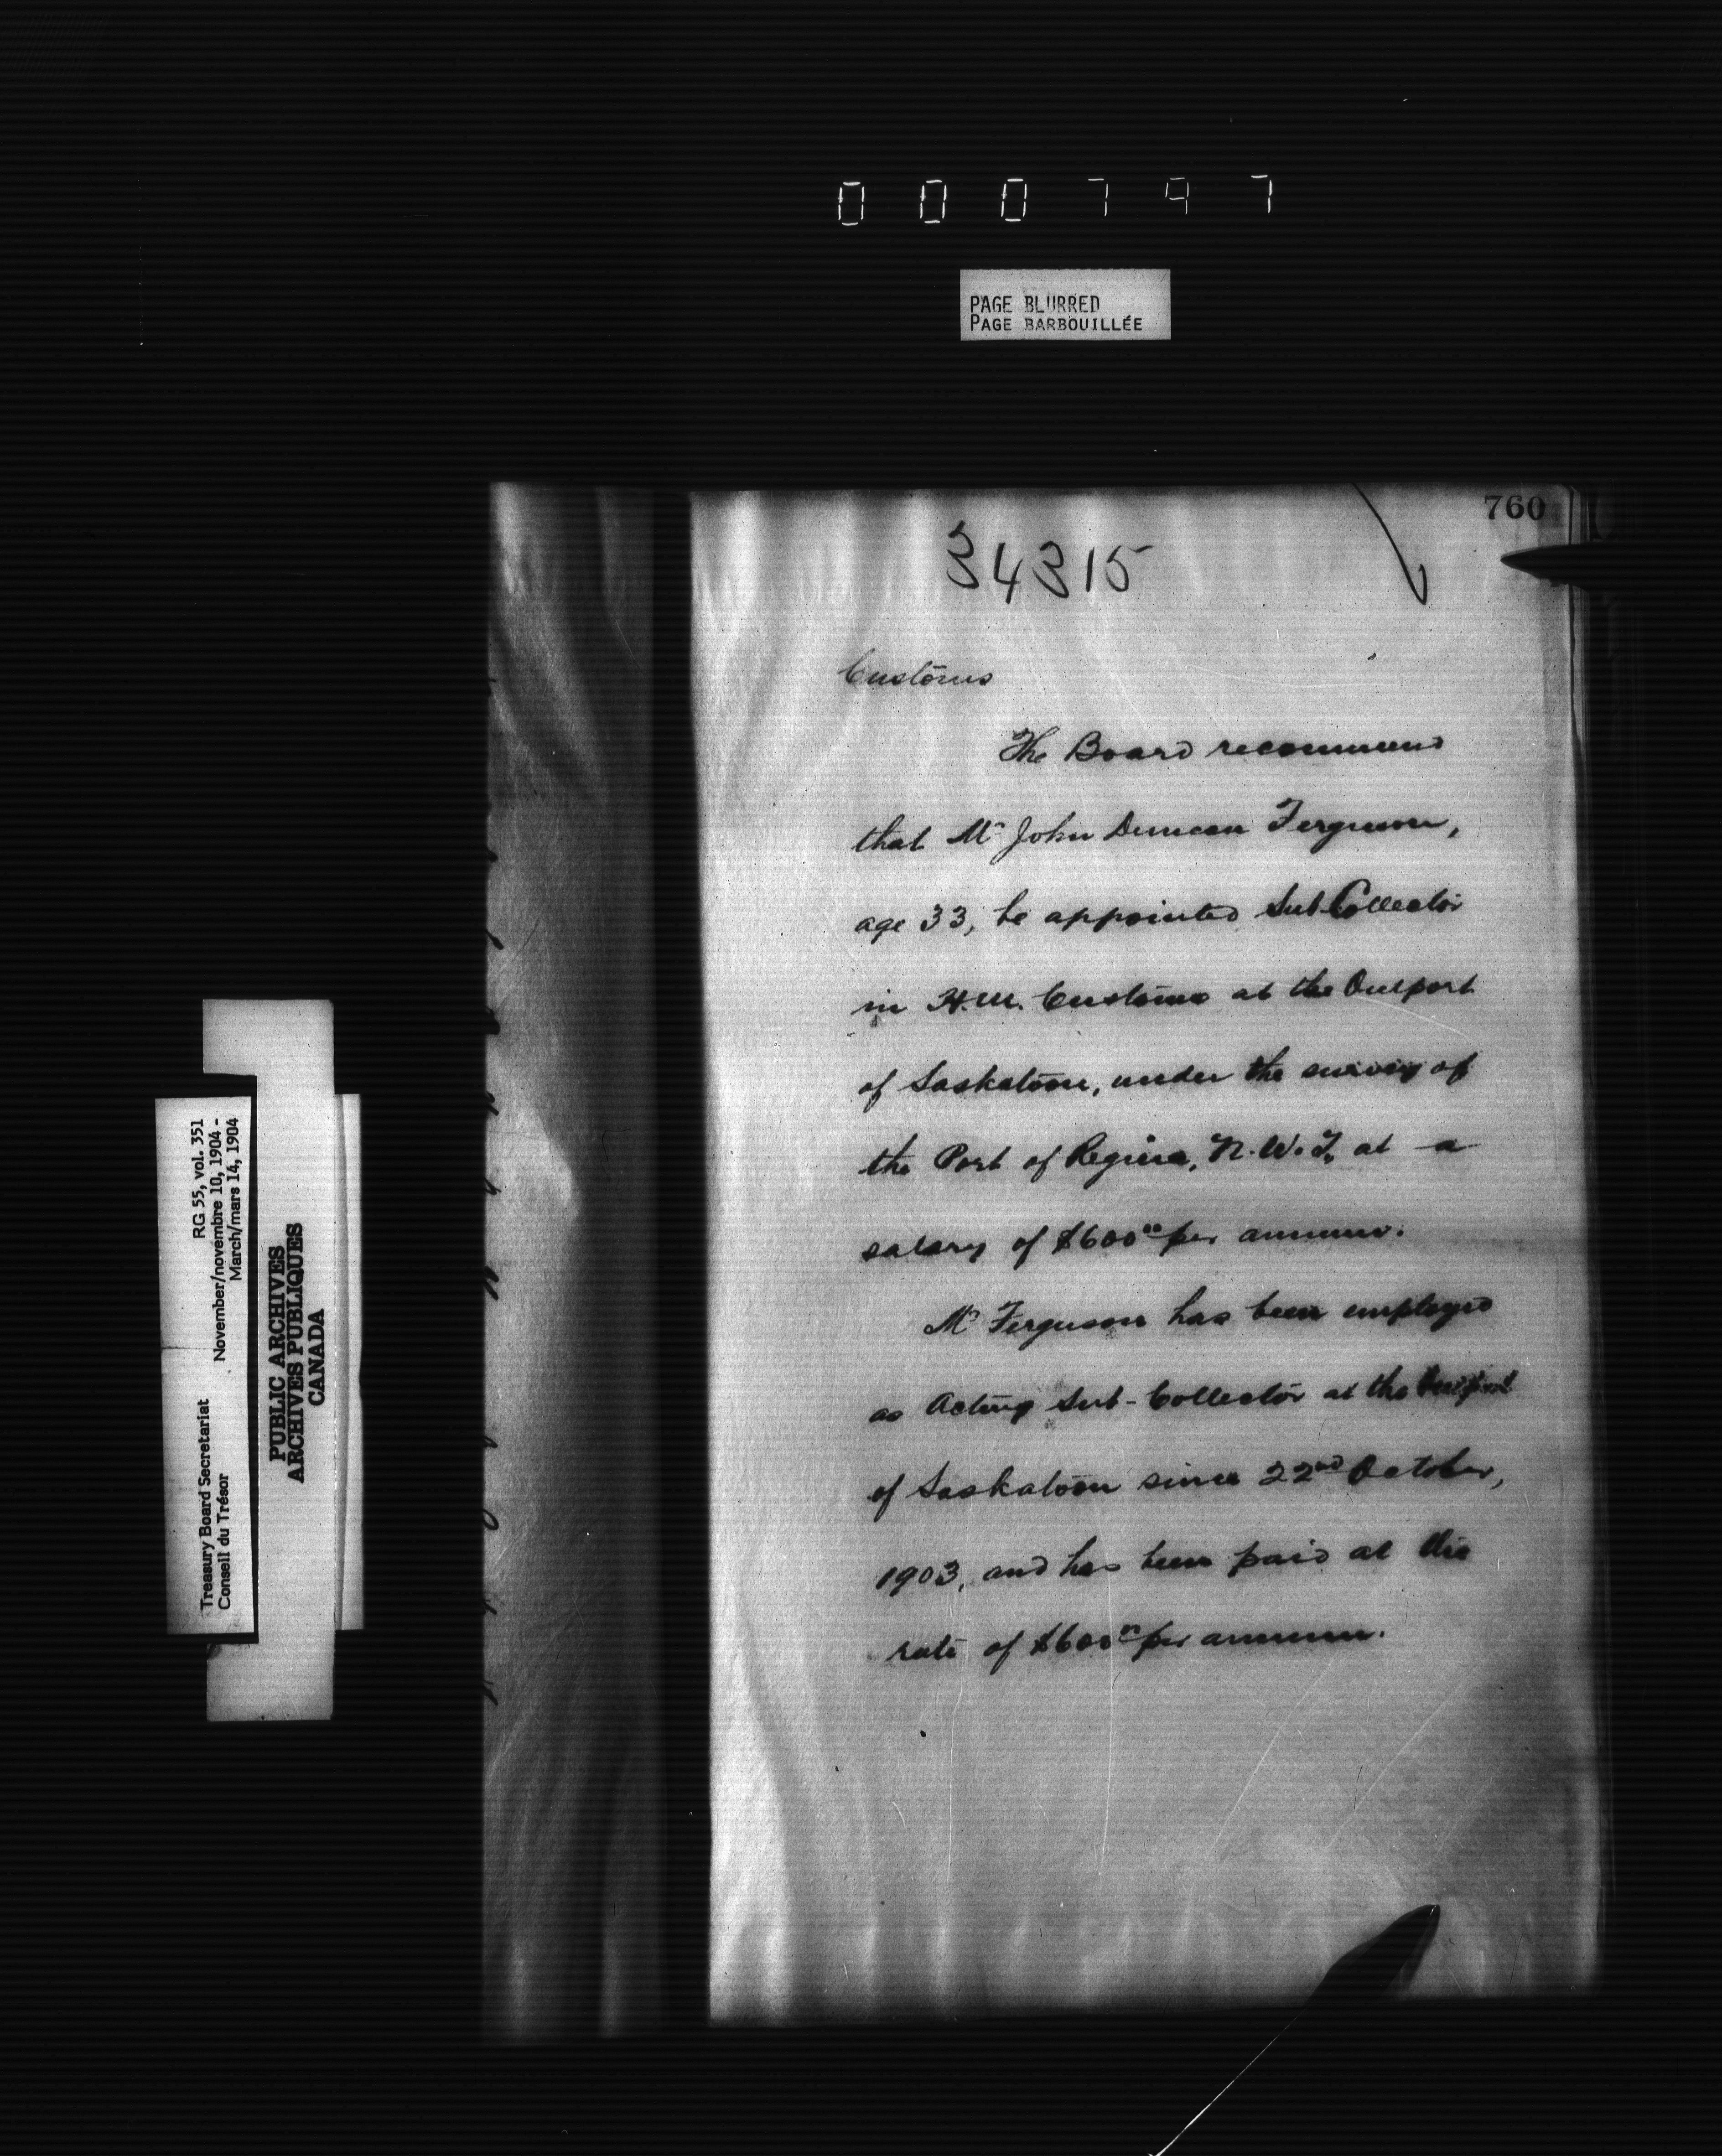 000797
PAGE BLURRED
PAGE BARBOUILLÉE
760
34315
Customs
The Board recommend
that Mr John Duncan Ferguson,
age 33, be appointed Sub-Collector
in H.M. Customs at the Outport
of Saskatoon, under the survey of
the Port of Regina, N.W.T, at a
salary of $600 00 per annum.
Mr Ferguson has been employed
as Acting Sub-Collector at the Outport
of Saskatoon since 22nd October,
1903, and has been paid at the
rate of $600 00 per annum.
Treasury Board Secretariat RG 55, vol. 351
Conseil du Trésor November/novembre 10, 1904 -
March/mars 14, 1904
PUBLIC ARCHIVES
ARCHIVES PUBLIQUES
CANADA